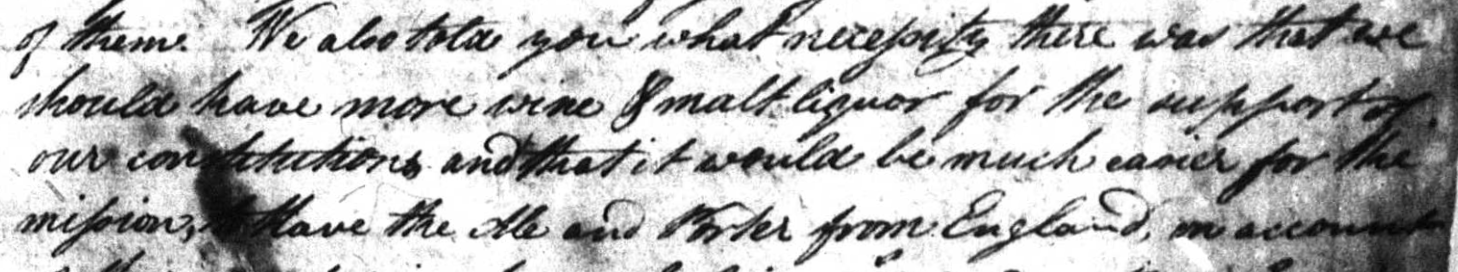 of them. We also told you what necessity there was that we
should have more wine & malt liquor for the support of
our constitutions and that it would be much easier for the
mission, to have the Ale and Porter from England, on account